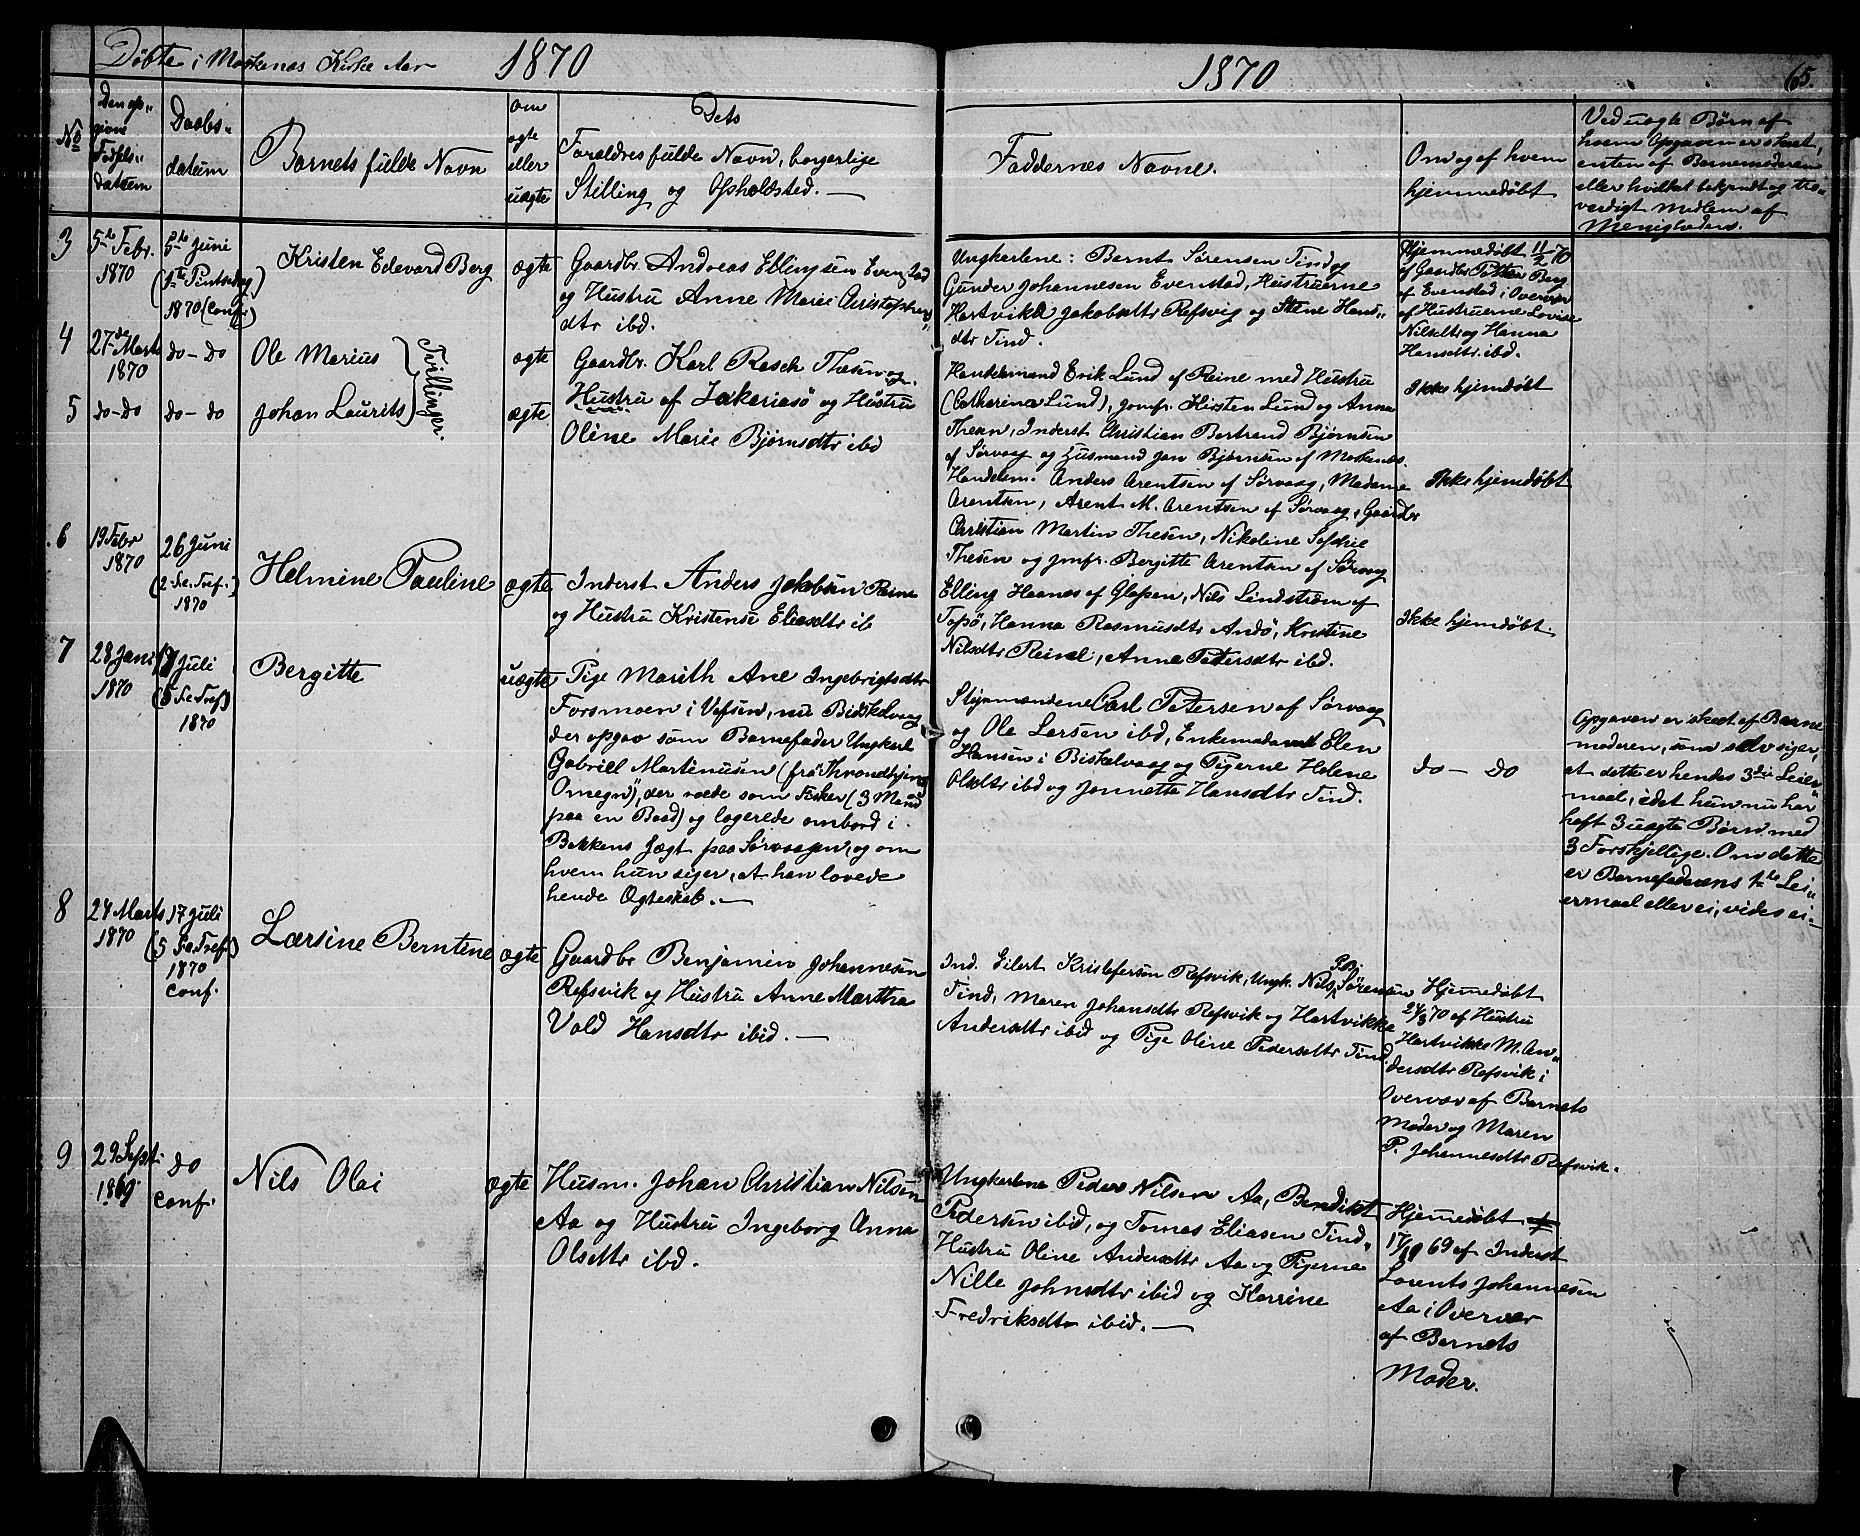 Döbte i Moskenæs Kirke Aar 1870
1870
65.
No
Den op-
givne
Födsels-
datum
Daabs-
datum
Barnets fulde Navn
om
ægte
eller
uægte
Dets
Forældres fulde Navn, borgerlige
Stilling og Opholdsted. —
Faddernes Navne.
Om og af hvem
hjemmedöbt
Ved uægte Børn af
hvem Opgaven er skeet,
enten af Barnemoderen
eller hvilket bekjendt og tro-
værdigt Medlem af
Menigheden.
3
5te Febr.
1870
5te Juni
(1ste Pintsedag)
1870 (Conf.)
Kristen Edevard Berg
ægte
Gaardbr. Andreas Ellingsen Evenstad
og Hustru Anne Marie Christophers-
dtr ibd.
Ungkarlene: Bernt Sørensen Tind og
Gunder Johannesen Evenstad, Hustruerne
Hartvikka Jakobsdtr Refsvig og Stene Hans-
dtr Tind.
Hjemmedöbt 11/2 70
af Gaardbr Petter Berg
af Evenstad i Overvær
af Hustruerne Lovise
Nilsdtr og Hanna
Hansdtr. ibd.
4
27de Marts
1870
do - do
Ole Marius
Tvillinger.
ægte
Gaardbr. Karl Rasch Thesen og
5
do - do
do - do
Johan Laurits
ægte
Hustru af Zakariasö og Hustru
Oline Marie Bjørnsdtr ibd
Handelsmand Erik Lund af Reine med Hustru
(Catharina Lund), Jomfr. Kirsten Lund og Anna
Thesen, Inderst Christian Bertrand Bjørnsen
af Sørvaag og Husmand Jon Bjørnsen af Moskenæs.
Ikke hjemdöbt
Handelsm. Anders Arentsen af Sørvaag, Madame
Arentsen, Arent M. Arentsen af Sørvaag, Gaardbr
Christian Martin Thesen, Nikoline Sofhie
Thesen og Jmfr. Bergitte Arentsen af Sørvaag
Ikke hjemdöbt
6
19 Febr
1870
26 Juni
(2 S.e.Tref.)
1870
Helmine Pauline
ægte
Inderst Anders Jakobsen i Reine
og Hustru Kristense Eliasdtr ib
Elling Haanæs af Glaapen, Nils Lindstrøm af
Topö, Hanna Rasmusdtr Andö, Kristine
Nilsdtr Reine, Anne Petersdtr ibd.
Ikke hjemdöbt.
7
28 Jani
1870
17 Juli
(5 S.e.Tref)
1870
Bergitte
uægte
Pige Marith Ane Ingebrigtsdtr
Forsmoen i Vefsen, nu Bidskelvaag
der opgav som Barnefader Ungkarl
Gabriell Martinusen (fra Throndhjems
Omegn), der roede som Fisker (3 Mand
paa en Baad) og logerede ombord i
Bakkens Jægt paa Sørvaagen, og om
hvem hun siger, at han lovede
hende Ægteskab. —
Styrmændene Carl Petersen af Sørvaag
og Ole Larsen ibd, Enkemadame Elen
Hansen i Biskelvaag og Pigerne Helene
Olsdtr ibd og Jonnette Hansdtr Tind.
do — do
Opgaven er skeet af Barne
moderen, som selv siger,
at dette er hendes 3die Leier
maal, idet hun nu har
haft 3 uægte Børn med
3 Forskjellige. Om dette
er Barnefaderens 1ste Lei-
ermaal eller ei, vides ei —
8
24 Marts
1870
17 Juli
(5 S.e.Tref)
1870
Conf.
Larsine Berntine
ægte
Gaardbr Benjamin Johannesen
Refsvik og Hustru Anne Martha
Vold Hansdtr ibid. —
Ind. Eilert Kristofersen Refsvik, Ungk. Nils P.B. Sørensen
Tind, Maren Johansdtr Refsvik og Hartvikke
Andersdtr ibid og Pige Oline Pedersdtr Tind
Hjemedöbt
24/3 70 af Hustru
Hartvikke M. An-
dersdtr Refsvik i
Overvær af Barnets
Moder og Maren
P. Johannesdtr Refsvik.
9
29 Sept.
1869
do
Conf.
Nils Olai
ægte
Husm. Johan Christian Nilsen
Aa og Hustru Ingeborg Anna
Olsdtr ibd.
Ungkarlene Peder Nilsen Aa, Bendikt
Pedersen ibid, og Tomas Eliasen Tind,
Hustru Oline Andersdtr Aa og Pigerne
Nille Johnsdtr ibid og Karrine
Fredriksdtr ibid. —
Hjemedöbt
17/10 69 af Inderst
Lorents Johannesen
Aa i Overvær
af Barnets
Moder.